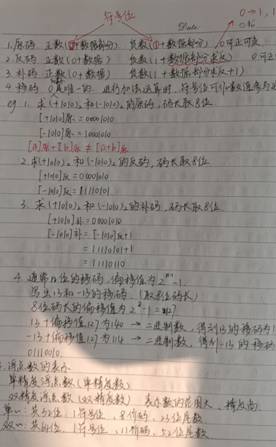 符号位
0→1,1
Date.
1.原码 正数(0+数据部分) 负数(1+数据部分) 0可正可负
2.反码 正数(0+数据) 负数(1+数据部分求反) 0可正
3.补码 正数(0+数据) 负数(1+数据部分求反+1)
4.移码 0是唯一的,进行加法运算时,符号位可以和数值
eg 1.求(+1010)₂和(-1010)₂的原码,码长取8位
[+1010]原=00001010
[-1010]原=10001010
[a]原+[b]原≠[a+b]原
2.求(+1010)₂和(-1010)₂的反码,码长取8位
[+1010]反=00001010
[-1010]反=11110101
3.求(+1010)₂和(-1010)₂的补码,码长取8位
[+1010]补=00001010
[-1010]补=[-1010]反+1
=11110101+1
=11110110
4.通常n位的移码,偏移值为2ⁿ⁻¹-1
写出13和-13的移码(取8位码长)
8位码长的偏移值为2⁸⁻¹-1=127
13+偏移值127为140→二进制数,得到13的移码为1
-13+偏移值127为114→二进制数,得到-13的移码
01110010
浮点数的表示
单精度浮点数(单精度数)
双精度浮点数(双精度数) 表示数的范围大,精度高
单:共32位 1符号位,8阶码,23位尾数
双:共64位 1符号位,11阶码,52位尾数